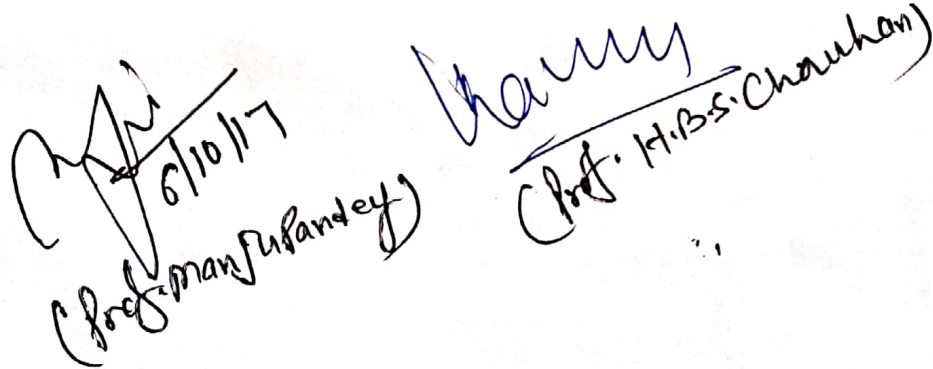 6/10/17
(Prof. Manju Pandey)
(Prof. H.B.S. Chauhan)